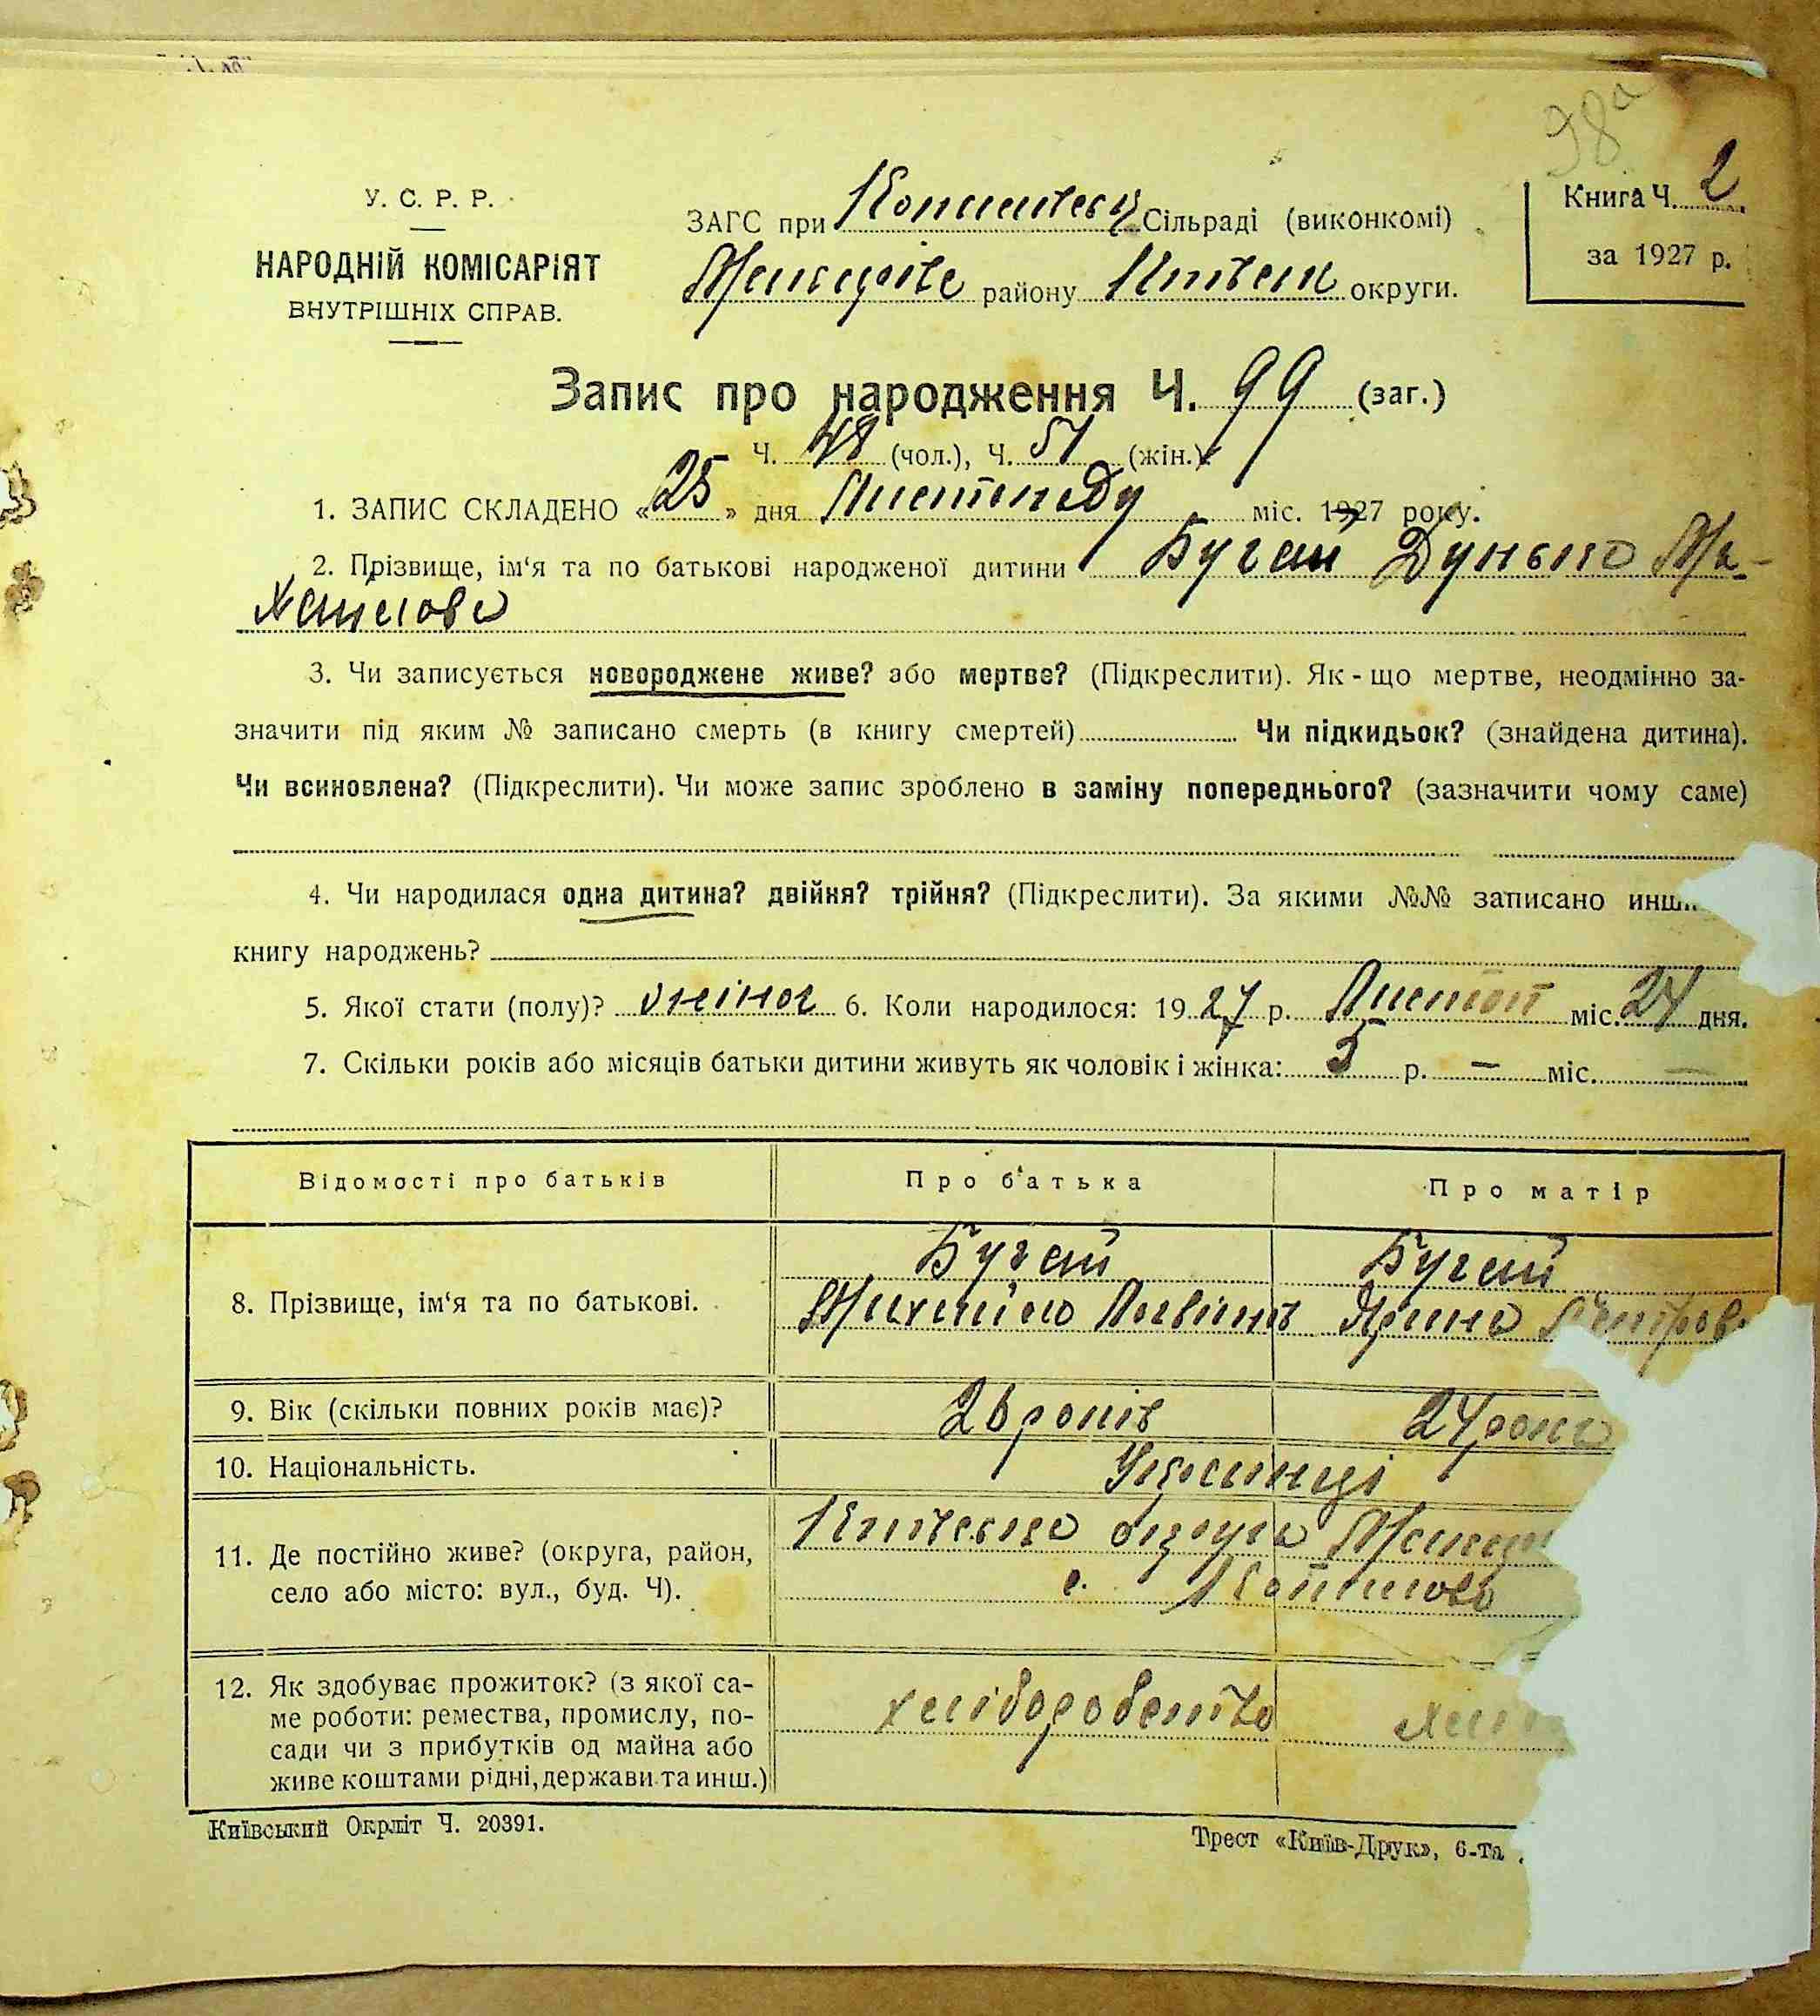 98а
У. С. Р. Р.
НАРОДНІЙ КОМІСАРІЯТ
ВНУТРІШНІХ СПРАВ.
ЗАГС при Сільраді (виконкомі)
району округи.
Книга Ч. 2
за 1927 р.
Запис про народження Ч. 99 (заг.)
Ч. 48 (чол.), Ч. 51 (жін.).
1. ЗАПИС СКЛАДЕНО «25» дня Листопаду міс. 1927 року.
2. Прізвище, ім‘я та по батькові народженої дитини Бугай Дунька Ми-
хайлова
3. Чи записується новороджене живе? або мертве? (Підкреслити). Як - що мертве, неодмінно за-
значити під яким № записано смерть (в книгу смертей) Чи підкидьок? (знайдена дитина).
Чи всиновлена? (Підкреслити). Чи може запис зроблено в заміну попереднього? (зазначити чому саме)
4. Чи народилася одна дитина? двійня? трійня? (Підкреслити). За якими №№ записано
книгу народжень?
5. Якої стати (полу)? жіноч 6. Коли народилося: 1927 р. Листоп міс. 24 дня.
7. Скільки років або місяців батьки дитини живуть як чоловік і жінка: 5 р. — міс. —
Відомості про батьків
Про батька
Про матір
8. Прізвище, ім‘я та по батькові.
Бугай
Михайло Логвінов
Бугай
Ярина Петров
9. Вік (скільки повних років має)?
26 років
24 роки
10. Національність.
Українці
11. Де постійно живе? (округа, район,
село або місто: вул., буд. Ч).
Київська округа
с. Копилово
12. Як здобуває прожиток? (з якої са-
ме роботи: ремества, промислу, по-
сади чи з прибутків од майна або
живе коштами рідні, держави та инш.)
хліборобство
Київський Окрліт Ч. 20391.
Трест «Київ-Друк», 6-та